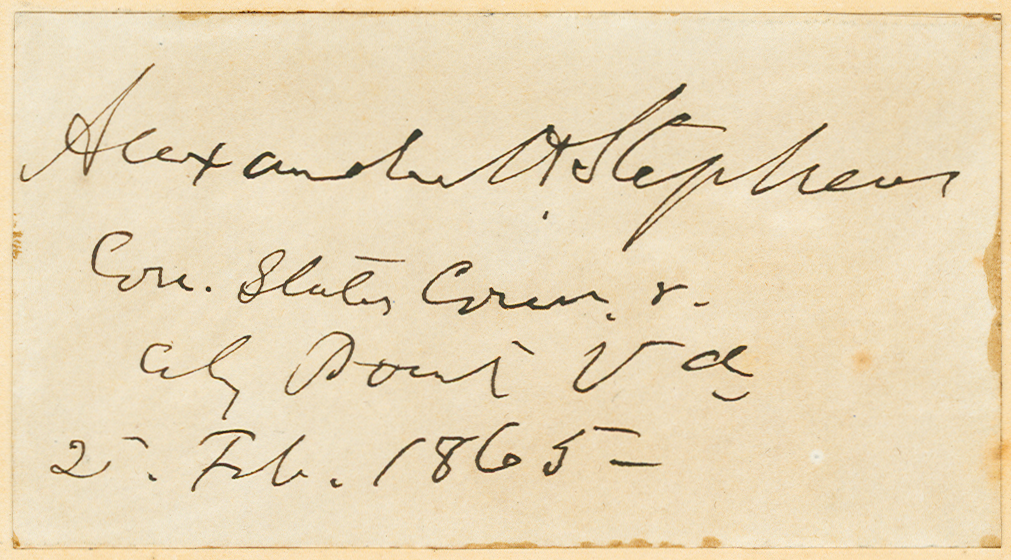 Alexander H. Stephens
Con. States Comr. &.
City Point Va
2. Feb. 1865–